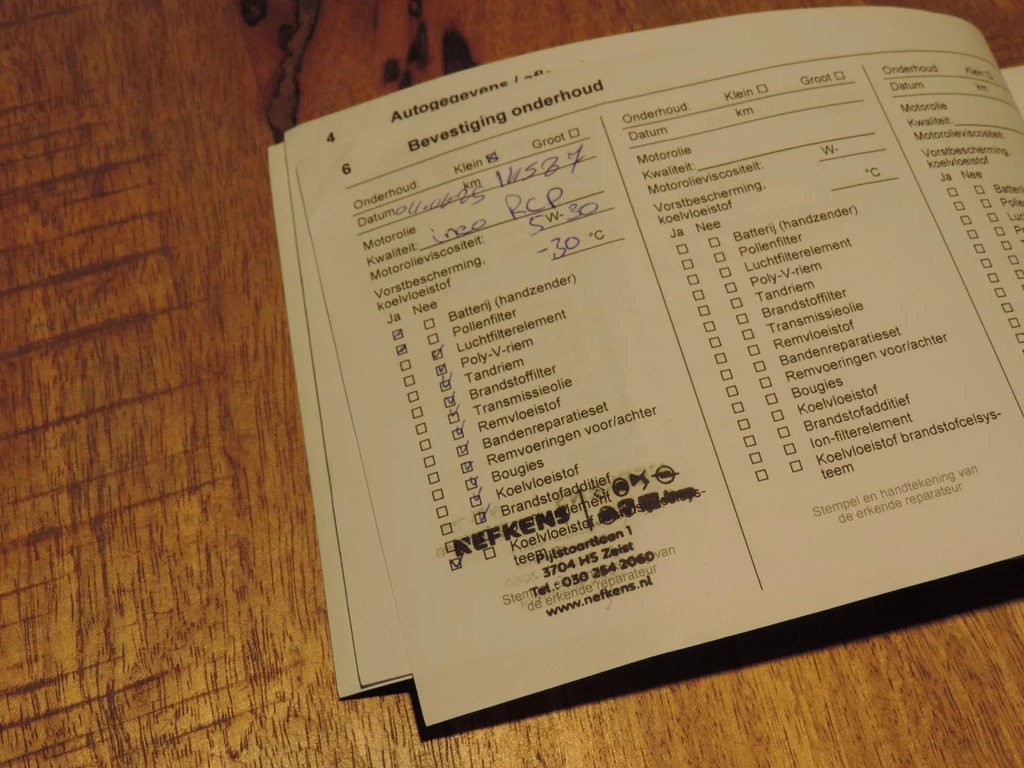 4
Autogegevens /
6
Bevestiging onderhoud
Onderhoud: Klein Groot
Datum km
Motorolie RCP
Kwaliteit: ineo
Motorolieviscositeit: 5 W- 30
Vorstbescherming,
koelvloeistof -30 °C
Ja Nee
Batterij (handzender)
Pollenfilter
Luchtfilterelement
Poly-V-riem
Tandriem
Brandstoffilter
Transmissieolie
Remvloeistof
Bandenreparatieset
Remvoeringen voor/achter
Bougies
Koelvloeistof
Brandstofadditief
Koelvloeistof
teem
NEFKENS
Pijlstaartlaan 1
3704 HS Zeist
Tel.: 030 254 2060
www.nefkens.nl
Stem van
de erkende reparateur
Onderhoud: Klein Groot
Datum km
Motorolie
Kwaliteit:
Motorolieviscositeit: W-
Vorstbescherming,
koelvloeistof °C
Ja Nee
Batterij (handzender)
Pollenfilter
Luchtfilterelement
Poly-V-riem
Tandriem
Brandstoffilter
Transmissieolie
Remvloeistof
Bandenreparatieset
Remvoeringen voor/achter
Bougies
Koelvloeistof
Brandstofadditief
Ion-filterelement
Koelvloeistof brandstofcelsys-
teem
Stempel en handtekening van
de erkende reparateur
Onderhoud: Klein
Datum km
Motorolie
Kwaliteit:
Motorolieviscositeit:
Vorstbescherming,
koelvloeistof
Ja Nee